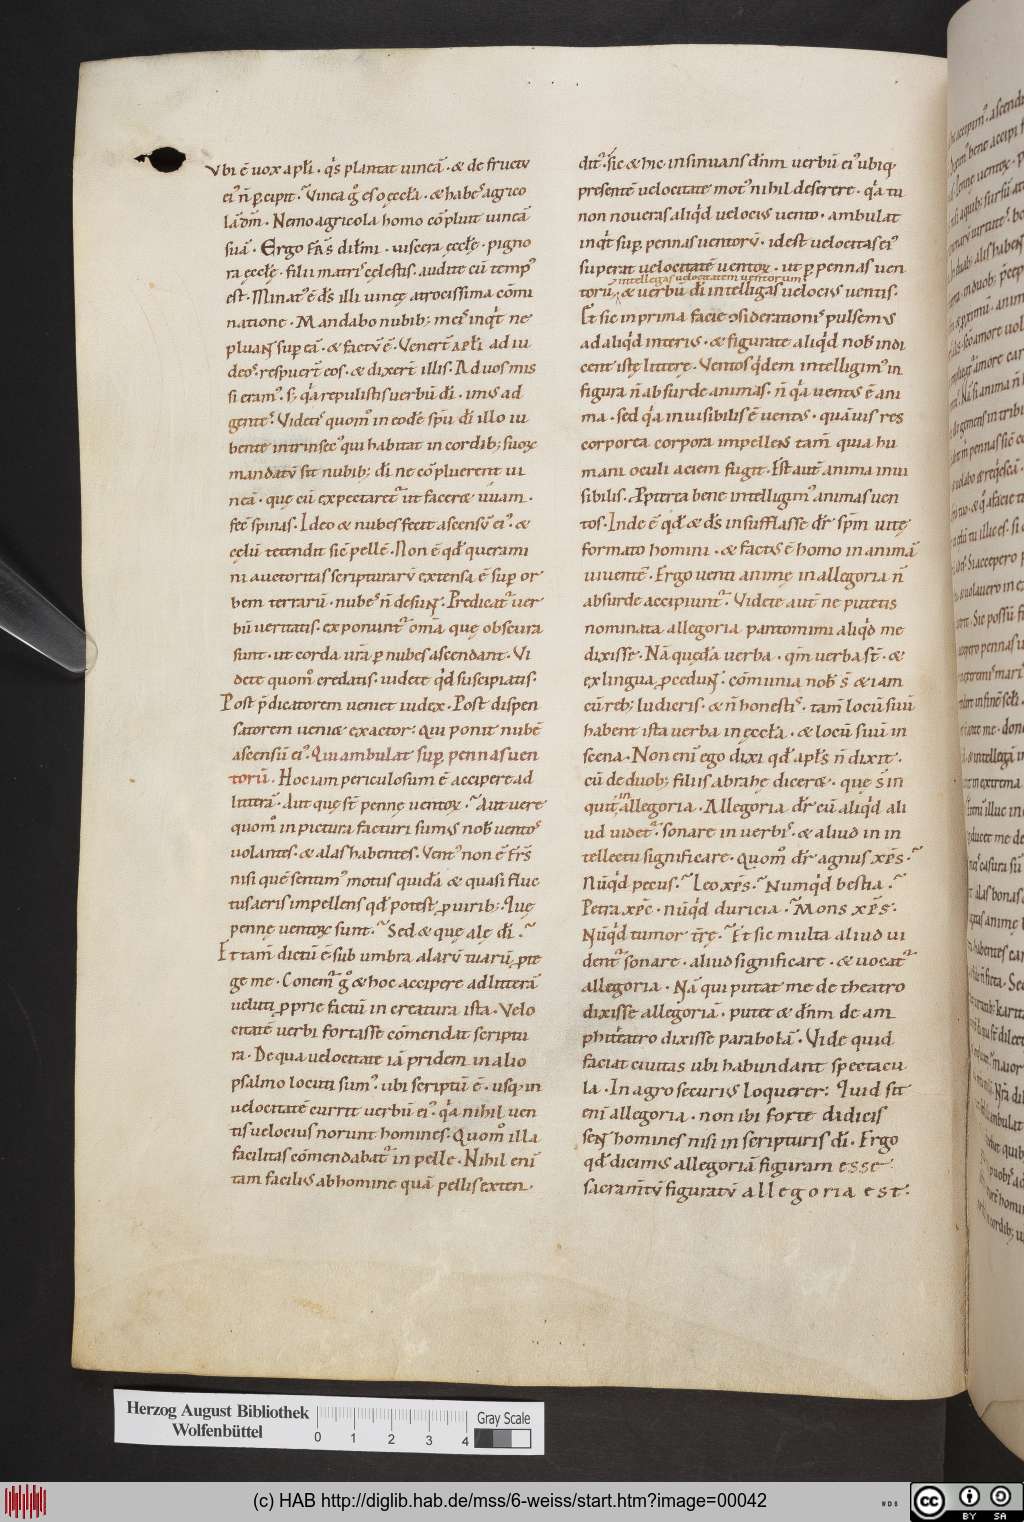 vbi ē vox apłi . qͥs plantat uineā . & de fructu
ei᷒ n̄ ꝑcipit . Vinea gͦ ÷ so ęcclа . & habeͭ agrico
lā dm̄ . Nemo agricola homo cōpluit uineā
suā . Ergo frs̄ dilmi . uiscera ęcclę . pigno
ra ęcclę . filii matriˢ cęlestis . audite cū temp᷒
est . Minat᷒ ē ds̄ illi uineę atrocissima cōmi
natione . Mandabo nubib; meiˢ inqͥt ne
pluant sup eā . & factū ē . Venert̄ apłi ad iu
deoˢ . respuert̄ eos . & dixert̄ illis . Ad uos mis
si eram᷒ . s; qͣ repulistis uerbū dī . im᷒ ad
genteˢ . Videtiˢ quom̊ in eodē spū dī illo iu
bente intrinsec᷒ qui habitat in cordib; suoꝝ
mandatū sit nubib; dī ne cōpluerent ui
neā . quę cū expectaretͬ ut facer& uuam .
fec̄ spinas . Ideo & nubes fecit ascensū ei᷒ . &
cęlū tetendit sic̄ pellē . Non ē qd̄ querami
ni auctoritas scripturarū extensa ē sup or
bem terrarū . nubeˢ n̄ desunt . Predicatͬ uer
bū ueritatis . exponuntͬ om̄a quę obscura
sunt . ut corda ur̄a ꝑ nubes ascendant . Vi
dete quom̊ credatis . uidete qͥd suscipiatis .
Post p̄dicatorem ueniet iudex . Post dispen
satorem ueni& exactor : Qui ponit nubē
ascensū ei᷒ . Qui ambulat sup pennas uen
torū . Hoc iam periculosum ē accipere ad
litterā . Aut quę st̄ pennę uentoꝝ . Aut uere
quom̊ in pictura facturi sum᷒ nob̄ uentoˢ
uolantes . & alas habentes . Vent᷒ non ē frs̄
nisi quē sentim᷒ motus quidā & quasi fluc
tus aeris impellens qd̄ potest ꝓ uirib; Quę
pennę uentoꝝ sunt . Sed & quę alę dī .
Et tam̄ dictū ē sub umbra alarū tuarū ꝓte
ge me . Conem̄ gͦ & hoc accipere ad litterā
ueluti ꝓprie factū in creatura ista . Velo
citatē uerbi fortasse cōmendat scriptu
ra . De qua uelocitate iā pridem in alio
psalmo locuti sum᷒ . ubi scriptū ē . usq; in
uelocitatē currit uerbū ei᷒ . qͣ nihil uen
tis uelocius norunt homines . Quom̊ illa
facilitas cōmendabatͬ in pelle . Nihil eni
tam facili᷒ ab homine quā pellis exten
ditͬ . sic & hic insinuans dn̄m uerbū ei᷒ ubiq;
presentē uelocitate mot᷒ nihil deserere . qͣ tu
non noueras aliqͥd uelocius uento . ambulat
inqͥt sup pennas uentorū . id est uelocitas ei᷒
superat uelocitatē uentoꝝ . ut ꝑ pennas uen
intellegas uelocitatem uentorum
torū , & uerbū dī intelligas uelocius uentis .
Et sic in prima facie ↄsiderationiˢ pulsem᷒
ad aliqͥd interi᷒ . & figurate aliqͥd nob̄ indi
cent istę litterę . Ventos qͥdem intelligim᷒ in
figura n̄ absurde animas . n̄ qͣ uentus ē ani
ma . sed qͣ inuisibilis ē uentus . quāuis res
corporea corpora impellens tam̄ quia hu
mani oculi aciem fugit . Est aut̄ anima inui
sibilis . Ꝓpterea bene intelligim᷒ animas uen
tos . Inde ē qd̄ & ds̄ insufflasse dr̄ spm̄ uitę
formato homini . & factus ē homo in animā
uiuentē . Ergo uenti animę in allegoria n̄
absurde accipiuntͬ . Videte aut̄ ne putetis
nominata allegoria pantomimi aliqͥd me
dixisse . Nā quędā uerba . qm̄ uerba st̄ . &
ex lingua ꝓcedunt . cōmunia nob̄ s̄ & iam
cū reb; ludicris . & n̄ honestiˢ . tam̄ locū suū
habent ista uerba in ęccła . & locū suū in
scena . Non eni ego dixi qd̄ apłs n̄ dixit .
cū de duob; filiis abrahę diceret . quę s̄ in
quit in allegoria . Allegoria dr̄ cū aliqͥd ali
ud uidetͬ sonare in uerbiˢ . & aliud in in
tellectu significare . Quom̊ dr̄ agnus xp̄s .
Nūqͥd pecus . Leo xp̄s . Numqͥd bestia .
Petra xp̄c . nūqͥd duricia . Mons xp̄s .
Nūqͥd tumor tr̄ę . Et sic multa aliud ui
dentͬ sonare . aliud significare . & uocatͬ
allegoria . Nā qui putat me de theatro
dixisse allegoriā . putet & dn̄m de am
phiteatro dixisse parabolā . Vide quid
faciat ciuitas ubi habundant spectacu
la . In agro securi᷒ loquerer : Quid sit
eni allegoria . non ibi forte didicis
sent homines nisi in scripturis dī . Ergo
qd̄ dicim᷒ allegoriā figuram esse
sacram̄tū figuratū allegoria est .
Herzog August Bibliothek
Wolfenbüttel
0 1 2 3 4
Gray Scale
(c) HAB http://diglib.hab.de/mss/6-weiss/start.htm?image=00042
cc BY SA